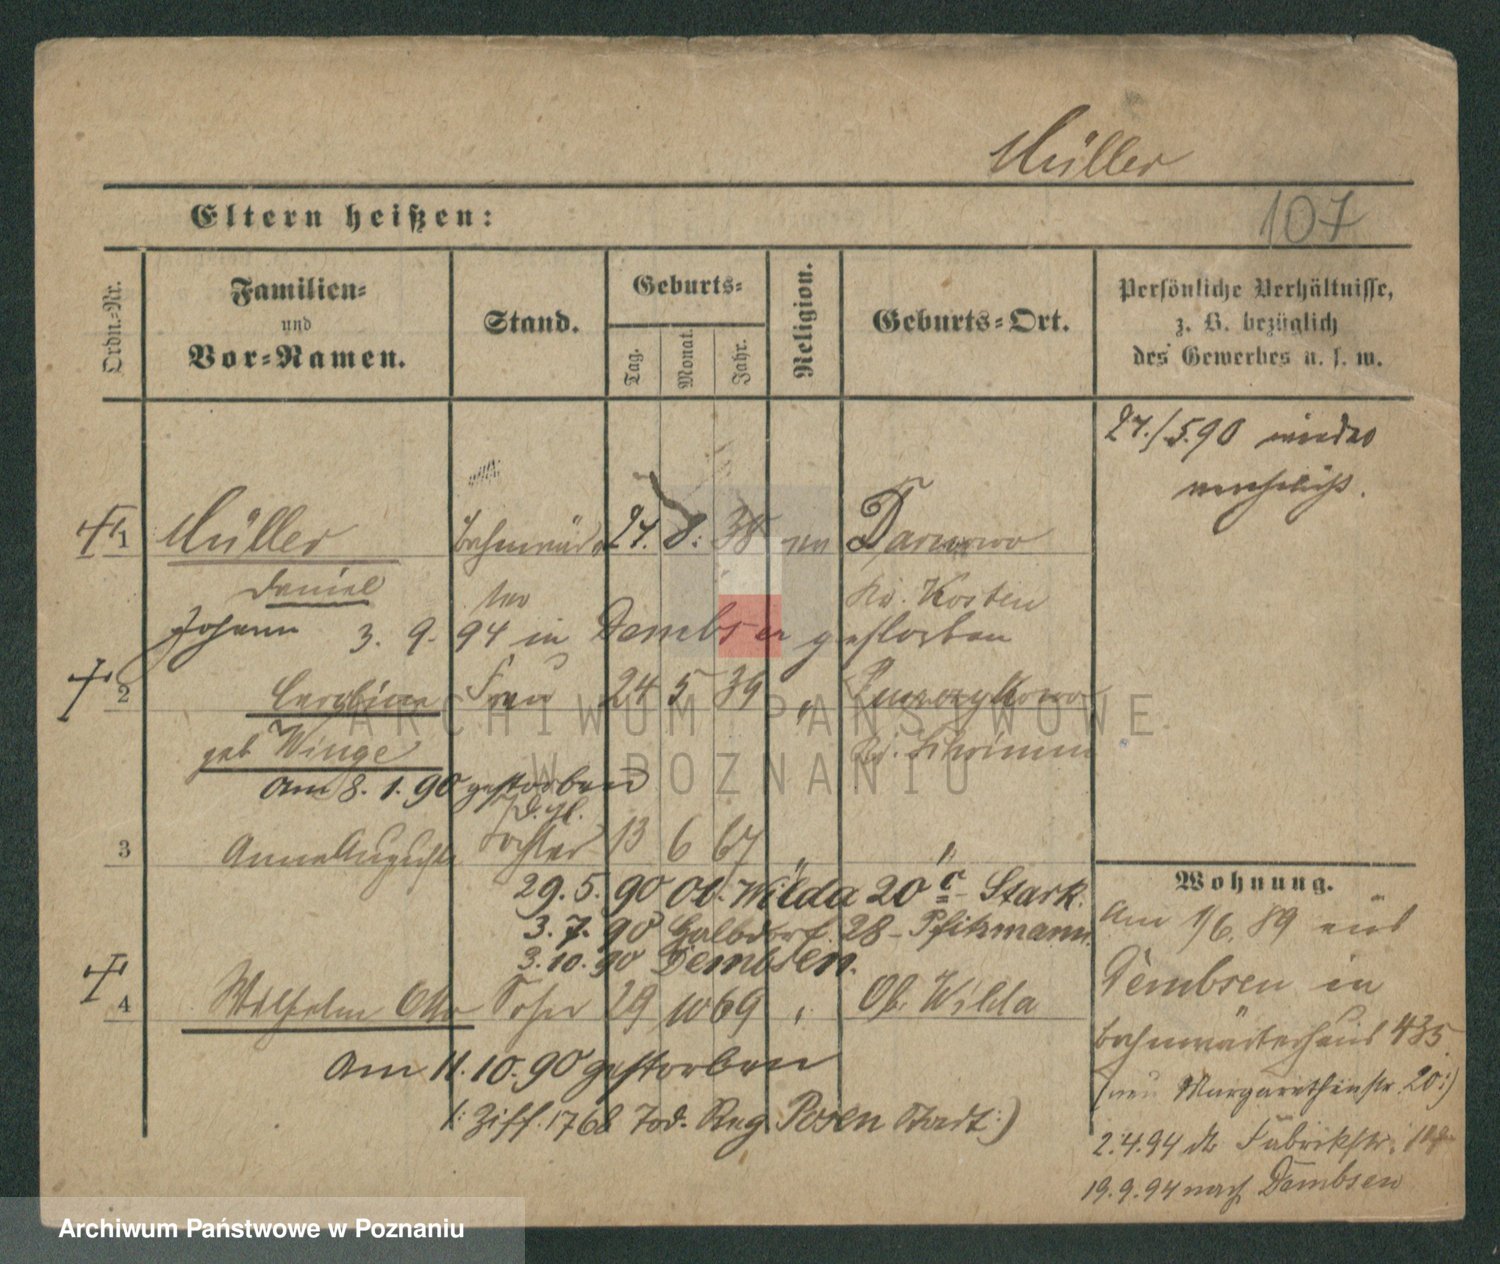 Müller
Eltern heißen:
107
Ordn.-Nr.
Familien-
und
Vor-Namen.
Stand.
Geburts-
Tag.
Monat.
Jahr.
Religion.
Geburts-Ort.
Persönliche Verhältnisse,
z. B. bezüglich
des Gewerbes u. s. w.
27./5.90 wieder
verehelicht.
1 Müller Bahnwär 24. 8. 38 Darnowo
Daniel ter Kr. Kosten
Johann 3. 9. 94 in Dembsen gestorben
2 Caroline Frau 24 5 39 "
geb Winge Kr. Schrimm
Am 8. 1. 90 gestorben
3 Anna Auguste Tochter 13 6 67 " "
29. 5. 90 Ob. Wilda 20 c Stark.
3. 7. 90 28 - Pfitzmann
3. 10. 90 Dembsen.
4 Wilhelm Otto Sohn 29 10 69 " Ob. Wilda
Am 11. 10. 90 gestorben
(: Ziff. 1768 Tod. Reg Posen Stadt :)
Wohnung.
Am 1/6. 89 aus
Dembsen in
Bahnwärterhaus 435
(neu Margarethenstr. 20 :)
2. 4. 94 Fabrikstr.
19. 9. 94 nach Dembsen
ARCHIWUM PAŃSTWOWE
W POZNANIU
Archiwum Państwowe w Poznaniu